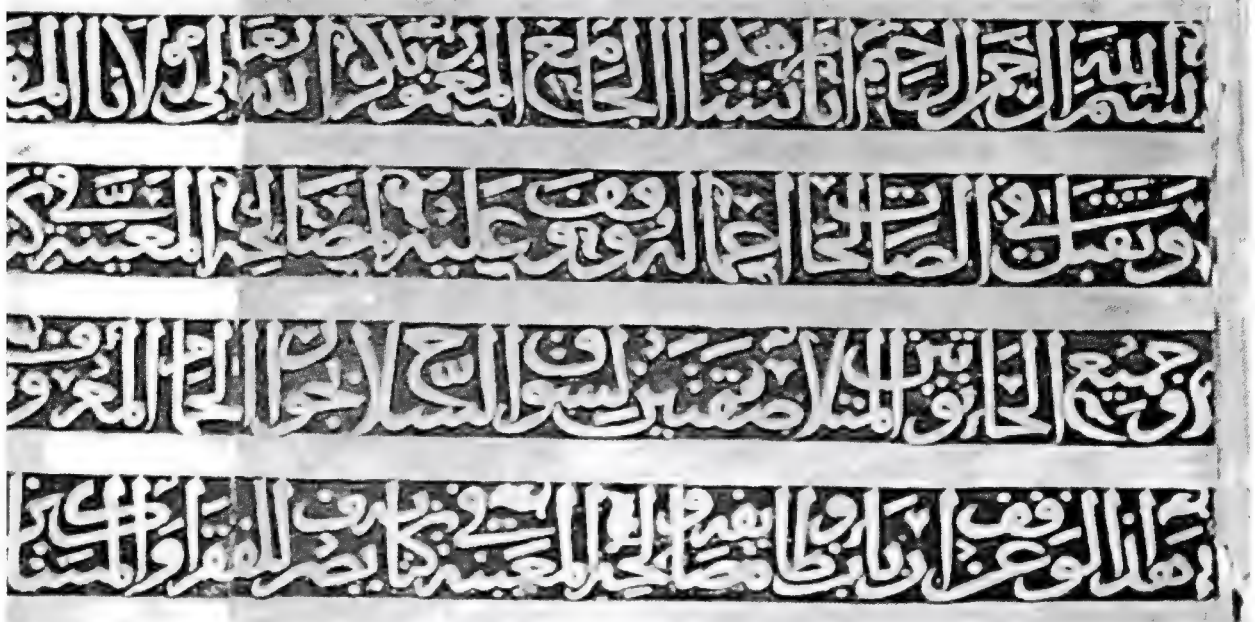 بسم الله الرحمن الرحيم أمر بانشاء هذا الجامع المعمور بذكر الله تعالى مولانا المقر
وتقبل في الصالحات أعماله ووقف عليه وعلى مصالحه المعينة في
وجميع الحانوتين المتلاصقتين بسوق السلاح بجوار الحمام المعروف
هذا الوقف عن مصالحه المعينة في كتاب يصرف للفقراء والمساكين